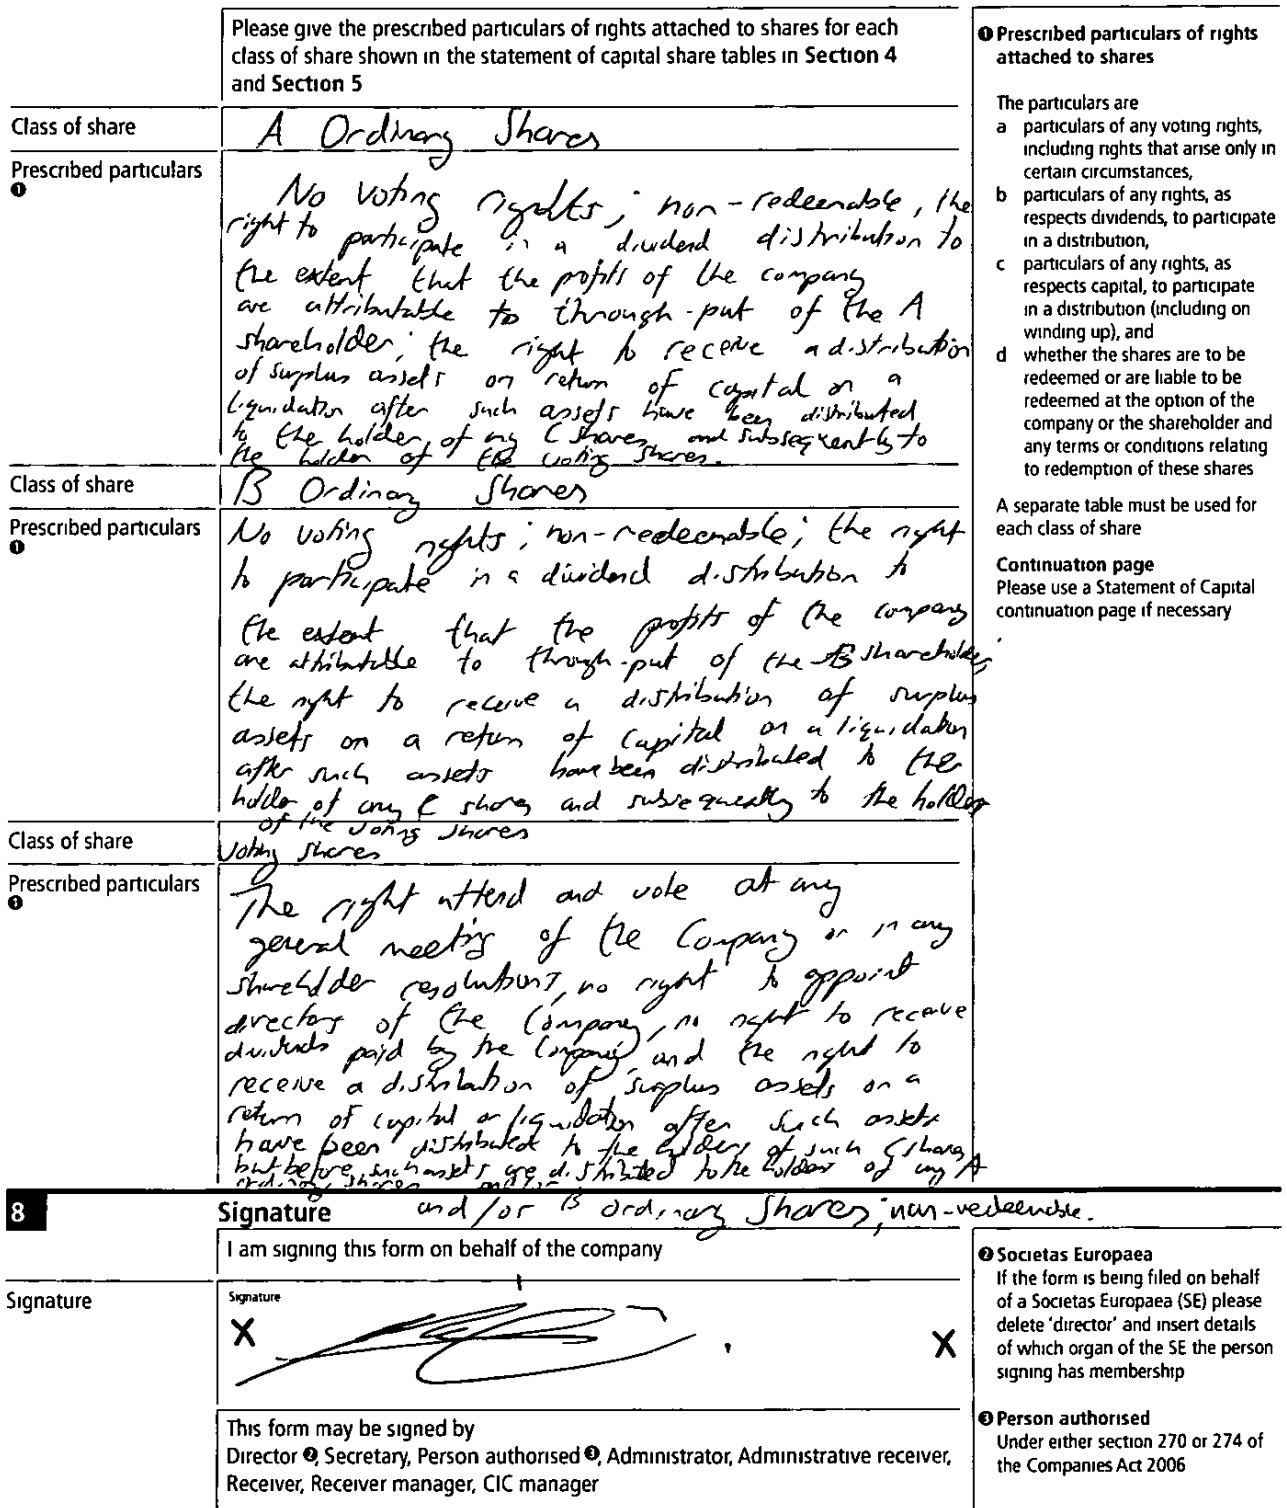 Please give the prescribed particulars of rights attached to shares for each
class of share shown in the statement of capital share tables in Section 4
and Section 5
Class of share
A Ordinary Shares
Prescribed particulars
❶
No voting rights; non-redeemable, the
right to participate in a dividend distribution to
the extent that the profits of the company
are attributable to through-put of the A
shareholder; the right to receive a distribution
of surplus assets on return of capital on a
liquidation after such assets have been distributed
to the holder of any C shares and subsequently to
the holder of the voting shares.
Class of share
B Ordinary Shares
Prescribed particulars
❶
No voting rights; non-redeemable; the right
to participate in a dividend distribution to
the extent that the profits of the company
are attributable to through-put of the B shareholder;
the right to receive a distribution of surplus
assets on a return of capital on a liquidation
after such assets have been distributed to the
holder of any C shares and subsequently to the holder
of the voting shares
Class of share
Voting shares
Prescribed particulars
❶
The right attend and vote at any
general meeting of the Company or in any
shareholder resolutions, no right to appoint
directors of the Company, no right to receive
dividends paid by the Company, and the right to
receive a distribution of surplus assets on a
return of capital or liquidation after such assets
have been distributed to the holders of such C shares
but before such assets are distributed to the holder of any A
ordinary shares
and/or B ordinary shares; non-redeemable.
❶ Prescribed particulars of rights
attached to shares
The particulars are
a particulars of any voting rights,
including rights that arise only in
certain circumstances,
b particulars of any rights, as
respects dividends, to participate
in a distribution,
c particulars of any rights, as
respects capital, to participate
in a distribution (including on
winding up), and
d whether the shares are to be
redeemed or are liable to be
redeemed at the option of the
company or the shareholder and
any terms or conditions relating
to redemption of these shares
A separate table must be used for
each class of share
Continuation page
Please use a Statement of Capital
continuation page if necessary
8
Signature
I am signing this form on behalf of the company
Signature
Signature
X
X
This form may be signed by
Director ❷, Secretary, Person authorised ❸, Administrator, Administrative receiver,
Receiver, Receiver manager, CIC manager
❷ Societas Europaea
If the form is being filed on behalf
of a Societas Europaea (SE) please
delete 'director' and insert details
of which organ of the SE the person
signing has membership
❸ Person authorised
Under either section 270 or 274 of
the Companies Act 2006